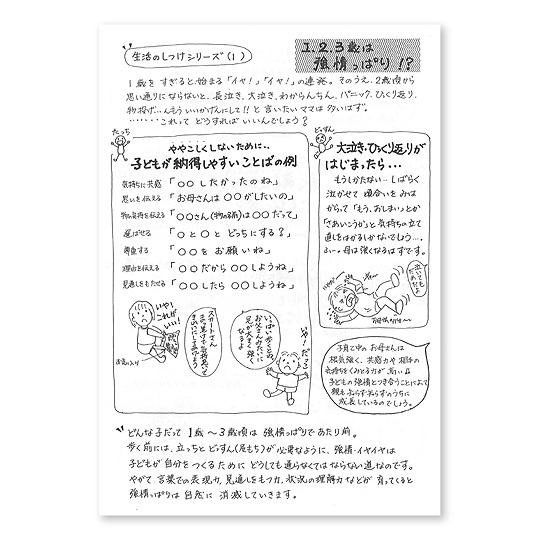 生活のしつけシリーズ(1)
1.2.3歳は
強情っぱり!?
1歳をすぎると始まる「イヤ!」「イヤ!」の連発。そのうえ、2歳頃から
思い通りにならないと、長泣き、大泣き、わからんちん、パニック、ひっくり返り、
物投げ…んもういいかげんにして!!と言いたいママは多いはず。
………これってどうすればいいんでしょう?
たっち
ややこしくしないために..
子どもが納得しやすいことばの例
気持ちに共感「○○したかったのね」
思いを伝える「お母さんは○○がしたいの」
物の気持を伝える「○○さん(物の名前)は○○だって」
選ばせる「○と○とどっちにする?」
尊重する「○○をお願いね」
理由を伝える「○○だから○○しようね」
見通しをもたせる「○○したら○○しようね」
いや!
これが
いい!
お気に入り
いや!
だっこ
どっすん
大泣き・ひっくり返りが
はじまったら...
もうしかたない…しばらく
泣かせて頃合いをみは
からって「もう、おしまい」とか
「さあいこうか」と気持ちの立て
直しをはかるしかないでしょう…
ふー。母は強くなるはずです。
泣いても
だめだよ
子育て中のお母さんは
根気強く、共感力や相手の
気持ちをくみとる力が高い!!
子どもの強情とつき合うことによって
親も知らず知らずのうちに
成長しているのでしょう。
どんな子だって1歳〜3歳頃は強情っぱりであたり前。
歩く前には、立っちとどっすん(尻もち)が必要なように、強情・イヤイヤは
子どもが自分をつくるためにどうしても通らなくてはならない道なのです。
やがて、言葉での表現力、見通しをもつ力、状況の理解力などが育ってくると
強情っぱりは自然に消滅していきます。